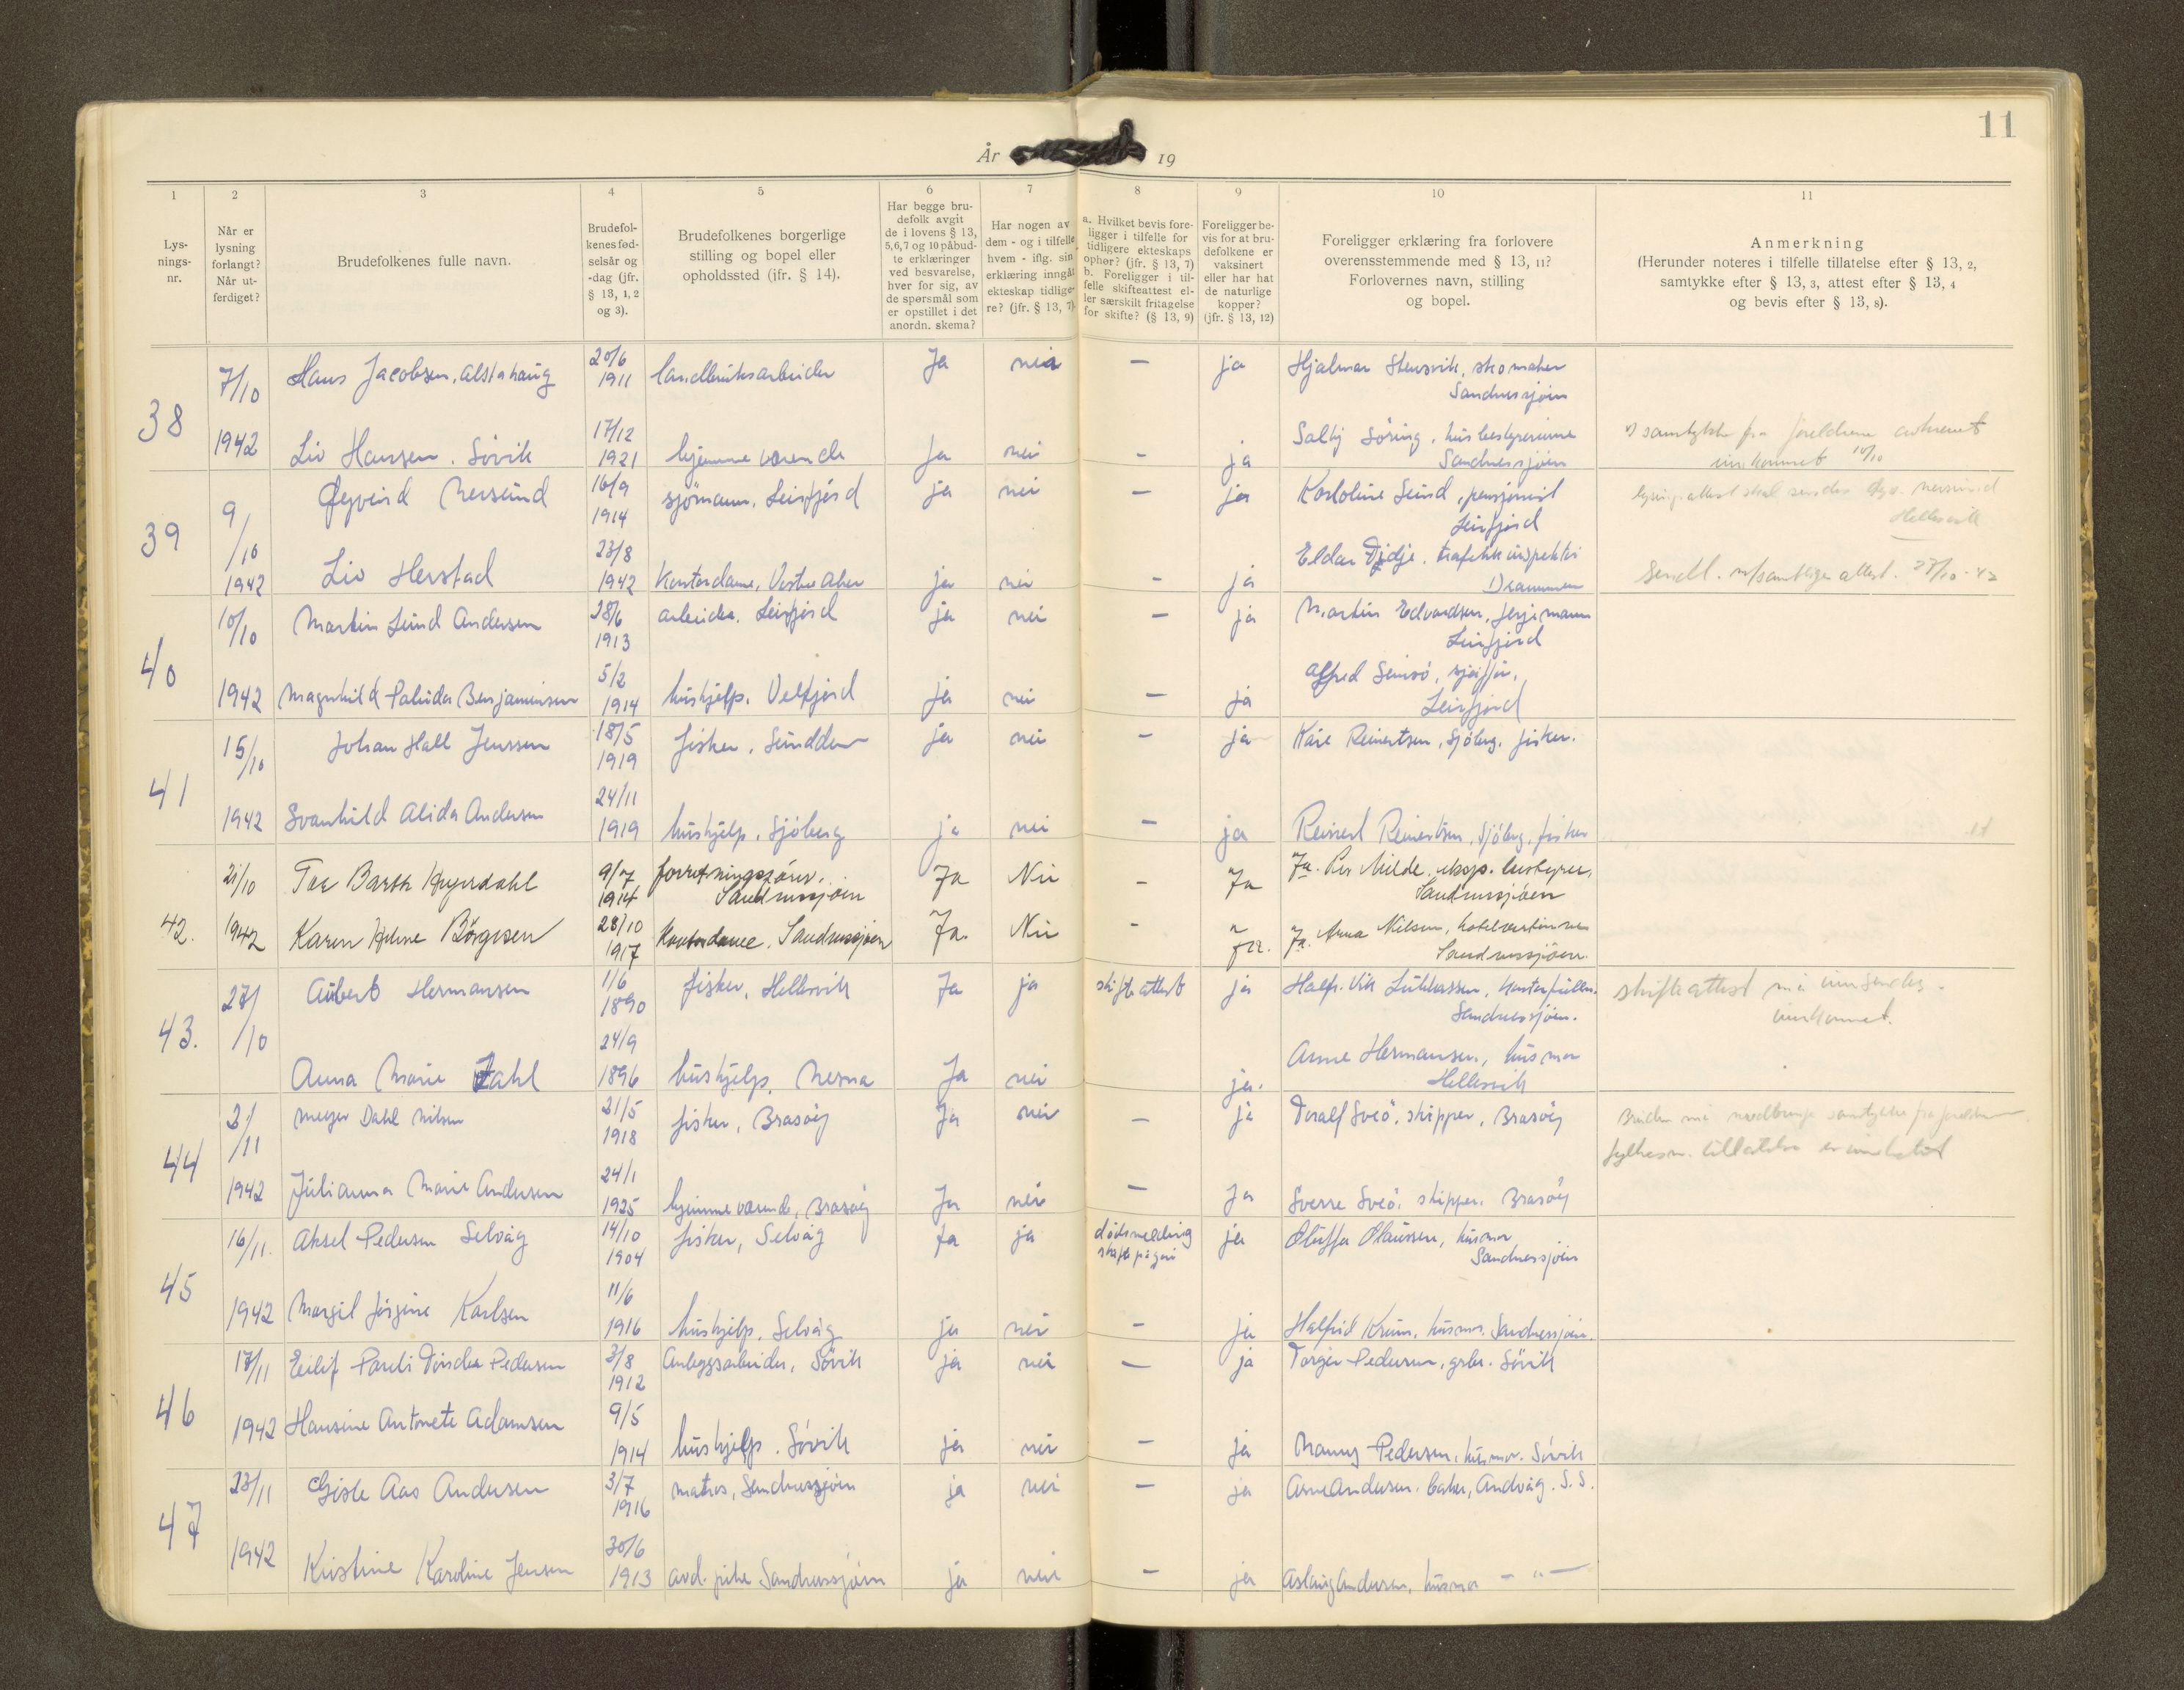 11
År 19
1 2 3 4 5 6 7 8 9 10 11
Lys-
nings-
nr.
Når er
lysning
forlangt?
Når ut-
ferdiget?
Brudefolkenes fulle navn.
Brudefol-
kenes fød-
selsår og
-dag (jfr.
§ 13, 1, 2
og 3).
Brudefolkenes borgerlige
stilling og bopel eller
opholdssted (jfr. § 14).
Har begge bru-
defolk avgit
de i lovens § 13,
5,6,7 og 10 påbud-
te erklæringer
ved besvarelse,
hver for sig, av
de spørsmål som
er opstillet i det
anordn. skema?
Har nogen av
dem - og i tilfelle
hvem - iflg. sin
erklæring inngåt
ekteskap tidlige-
re? (jfr. § 13, 7).
a. Hvilket bevis fore-
ligger i tilfelle for
tidligere ekteskaps
ophør? (jfr. § 13, 7)
b. Foreligger i til-
felle skifteattest el-
ler særskilt fritagelse
for skifte? (§ 13, 9)
Foreligger be-
vis for at bru-
defolkene er
vaksinert
eller har hat
de naturlige
kopper?
(jfr. § 13, 12)
Foreligger erklæring fra forlovere
overensstemmende med § 13, 11?
Forlovernes navn, stilling
og bopel.
Anmerkning
(Herunder noteres i tilfelle tillatelse efter § 13, 2,
samtykke efter § 13, 3, attest efter § 13, 4
og bevis efter § 13, 8).
38 7/10 Hans Jacobsen, Alstahaug 20/6 1911 landbruksarbeider Ja nei — ja Hjalmar Stensvik, skomaker
Sandnessjøen
1942 Liv Hansen. Søvik 17/12 1921 hjemmeværende Ja nei - ja Søring, husbestyrerinne
Sandnessjøen
samtykke fra foreldrene
innkommet 10/10
39 9/10 Øyvind Nersund 16/9 1914 sjømann, Leirfjord ja nei — ja Karoline Lund, pensjonist
Leirfjord
lysingsattest skal sendes
1942 Liv Herstad 23/8 1942 Kontordame, Vestre Aker ja nei - ja Eldar trafikkinspektør
Drammen
Sendt. 27/10-42
40 10/10 Martin Lund Andersen 28/6 1913 arbeider. Leirfjord ja nei — ja Martin Edvardsen, ferjemann
Leirfjord
1942 Magnhild Palida Benjaminsen 5/2 1914 hushjelp. Velfjord ja nei — ja Alfred sjåfør,
Leirfjord
41 15/10 Johan Hall Jenssen 18/5 1919 fisker, ja nei - ja Kåre Reinertsen, Sjøberg, fisker.
1942 Svanhild Alida Andersen 24/11 1919 hushjelp. Sjøberg ja nei — ja Reinert Reinertsen, Sjøberg, fisker
42. 21/10 Tor Barth 9/7 1914 forretningsfører.
Sandnessjøen Ja Nei - Ja Ja. Per Milde, eksp. bestyrer,
Sandnessjøen
1942 Karen Helene Børgesen 28/10 1917 Kontordame, Sandnessjøen Ja. Nei - Ja. Ja. Anna Nilsen, hotelvertinne
Sandnessjøen.
43. 27/10 Aubert Hermansen 1/6 1890 fisker, Hellesvik Ja ja skifteattest ja Half. Vik
Sandnessjøen.
skifteattest må innsendes.
innkommet.
Anna Marie Zahl 24/9 1896 hushjelp. Nesna Ja nei ja. Anne Hermansen, husmor
Hellesvik
44 3/11 Meyer Dahl Nilsen 21/5 1918 fisker, Brasøy Ja nei — ja Toralf Sveø, skipper, Brasøy
1942 Julianna Marie Andersen 24/1 1925 hjemmeværende, Brasøy Ja nei — Ja Sverre Sveø, skipper. Brasøy
Bruden må medbringe samtykke fra
fylkesm. tillatelse er
45 16/11. Aksel Pedersen Selvåg 14/10 1904 fisker, Selvåg Ja ja dødsmelding ja Oluffa Olaussen, husmor
Sandnessjøen
1942 Margit Jørgine Karlsen 11/6 1916 hushjelp. Selvåg ja nei - ja Halfrid Krum, husmor. Sandnessjøen.
46 17/11 Eilif Pareli Pedersen 3/8 1912 Anleggsarbeider, Søvik ja nei — ja Torgeir Pedersen, grbr. Søvik
1942 Hansine Antonete Adamsen 9/5 1914 hushjelp. Søvik ja nei - ja Nanny Pedersen, husmor. Søvik
47 23/11 Gisle Aas Andersen 3/7 1916 matros, Sandnessjøen ja nei — ja Arne Andersen. baker, Andvåg. S.S.
1942 Kristine Karoline Jensen 30/6 1913 avd. pike Sandnessjøen ja nei — ja Aslaug Andersen, husmor — " —